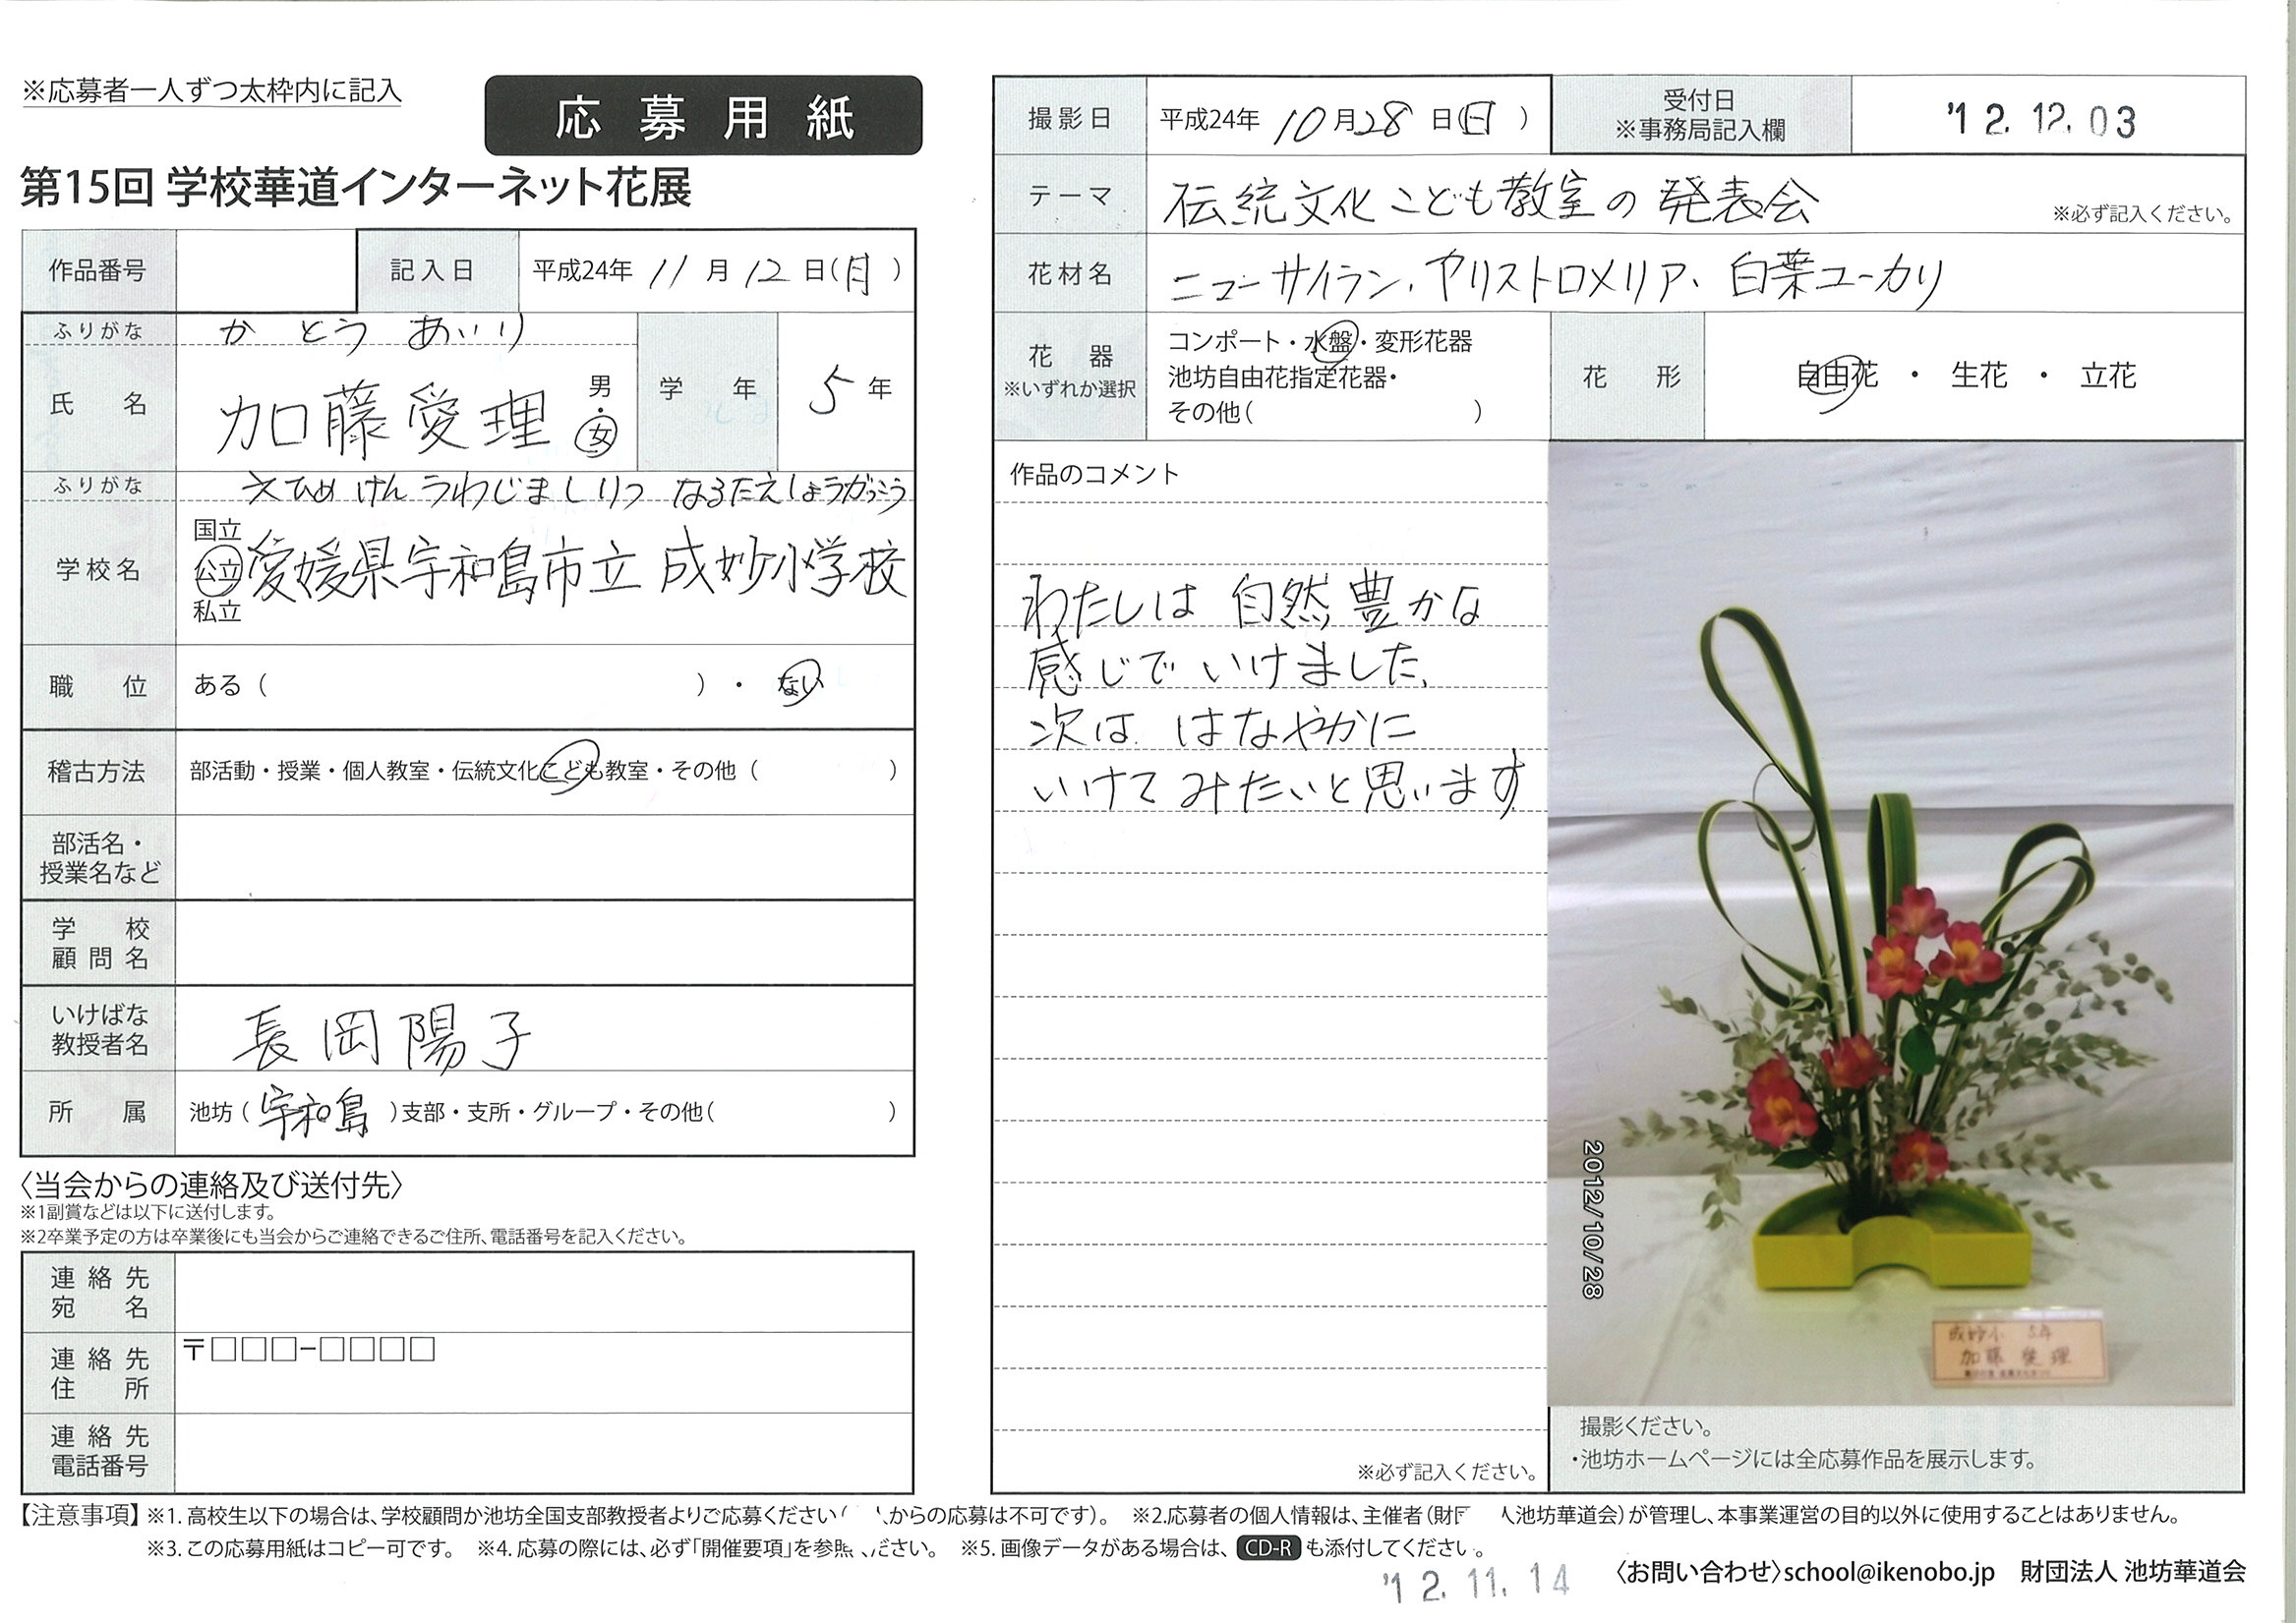 ※応募者一人ずつ太枠内に記入
応募用紙
第15回 学校華道インターネット花展
作品番号
記入日 平成24年 11月 12日(月)
ふりがな かとう あいり
氏名 加藤愛理 男・女
学年 5年
ふりがな えひめけん うわじましりつ なるたえしょうがっこう
学校名 国立 公立 私立 愛媛県宇和島市立 成妙小学校
職位 ある( )・ない
稽古方法 部活動・授業・個人教室・伝統文化こども教室・その他( )
部活名・
授業名など
学校
顧問名
いけばな
教授者名 長岡陽子
所属 池坊(宇和島)支部・支所・グループ・その他( )
〈当会からの連絡及び送付先〉
※1副賞などは以下に送付します。
※2卒業予定の方は卒業後にも当会からご連絡できるご住所、電話番号を記入ください。
連絡先
宛名
連絡先
住所
〒□□□-□□□□
連絡先
電話番号
撮影日 平成24年 10月28日(日)
受付日
※事務局記入欄
'12.12.03
テーマ 伝統文化こども教室の発表会 ※必ず記入ください。
花材名 ニューサイラン、アリストロメリア、白葉ユーカリ
花器
※いずれか選択
コンポート・水盤・変形花器
池坊自由花指定花器・
その他( )
花形 自由花・生花・立花
作品のコメント
わたしは 自然豊かな
感じでいけました。
次は はなやかに
いけてみたいと思います
※必ず記入ください。
2012/10/28
成妙小 5年
加藤 愛理
撮影ください。
・池坊ホームページには全応募作品を展示します。
【注意事項】※1.高校生以下の場合は、学校顧問か池坊全国支部教授者よりご応募ください( からの応募は不可です)。 ※2.応募者の個人情報は、主催者(財 池坊華道会)が管理し、本事業運営の目的以外に使用することはありません。
※3.この応募用紙はコピー可です。 ※4.応募の際には、必ず「開催要項」を参照 ださい。 ※5.画像データがある場合は、CD-Rも添付してください。
'12.11.14
〈お問い合わせ〉school@ikenobo.jp 財団法人 池坊華道会